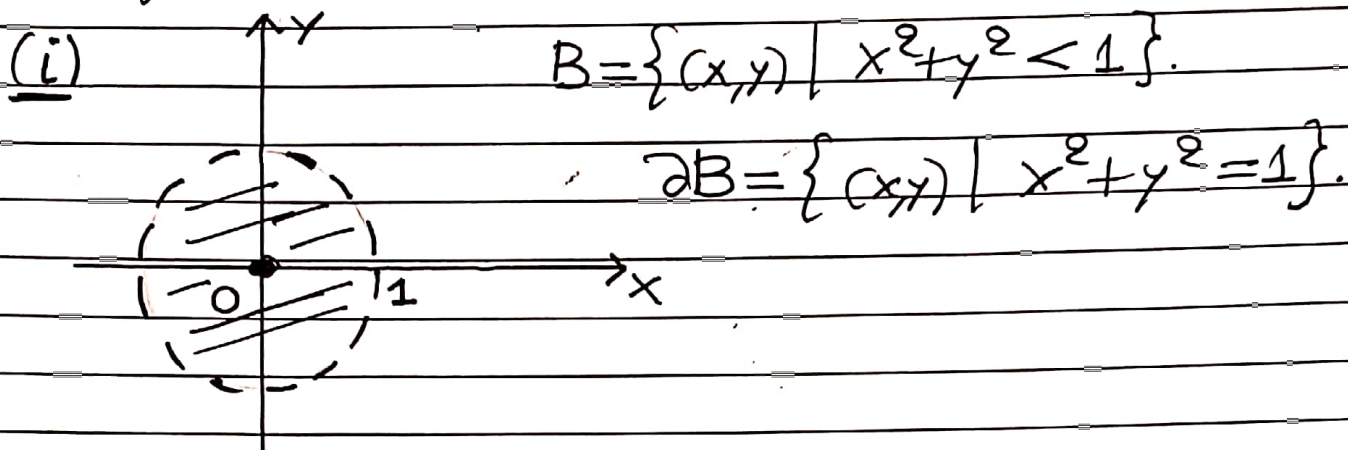 (i)
Y
B={(x,y)| x²+y² < 1}.
∂B={(x,y)| x²+y²=1}.
0
1
X